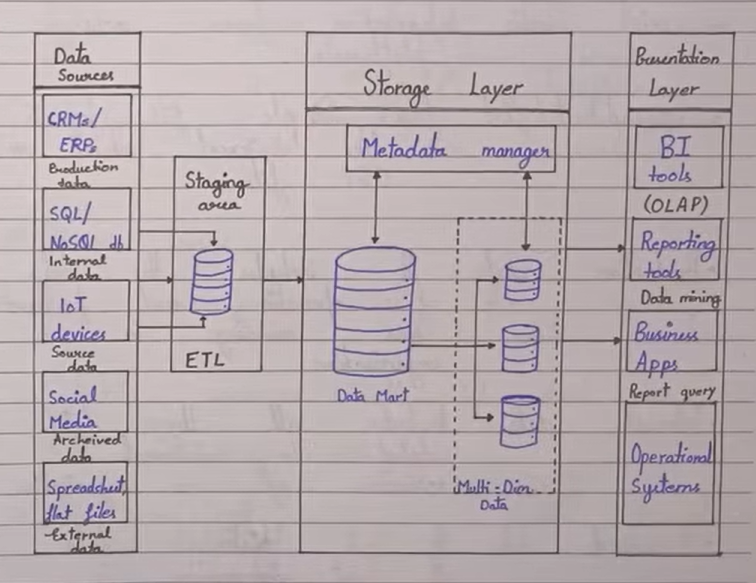 Data
Sources
CRMs/
ERPs
Production
data
SQL/
NoSQL db
Internal
data
IoT
devices
Source
data
Social
Media
Archeived
data
Spreadsheet,
flat files
External
data
Staging
area
ETL
Storage Layer
Metadata manager
Data Mart
Multi-Dim
Data
Presentation
Layer
BI
tools
(OLAP)
Reporting
tools
Data mining
Business
Apps
Report query
Operational
Systems